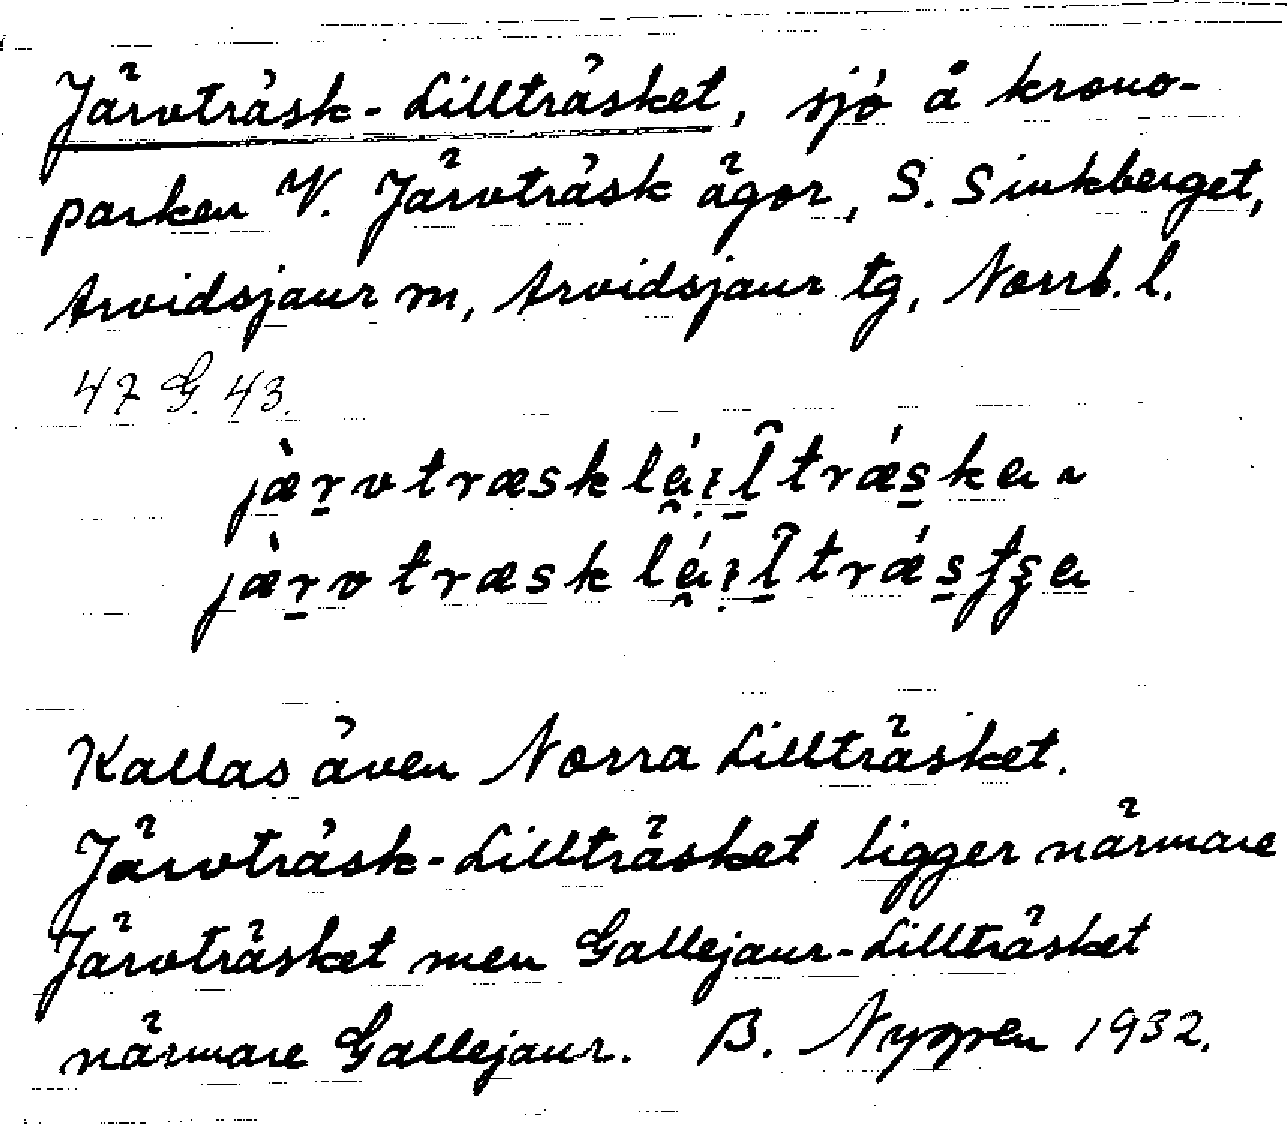 Järvträsk-Lillträsket, sjö å krono-
parken V. Järvträsk ägor, S. Sinkberget,
Arvidsjaur m, Arvidsjaur tg, Norrb. l.
47 G. 43.
Kallas även Norra Lillträsket.
Järvträsk-Lillträsket ligger närmare
Järvträsket men Gallejaur-Lillträsket
närmare Gallejaur. B. Nyppen 1932.